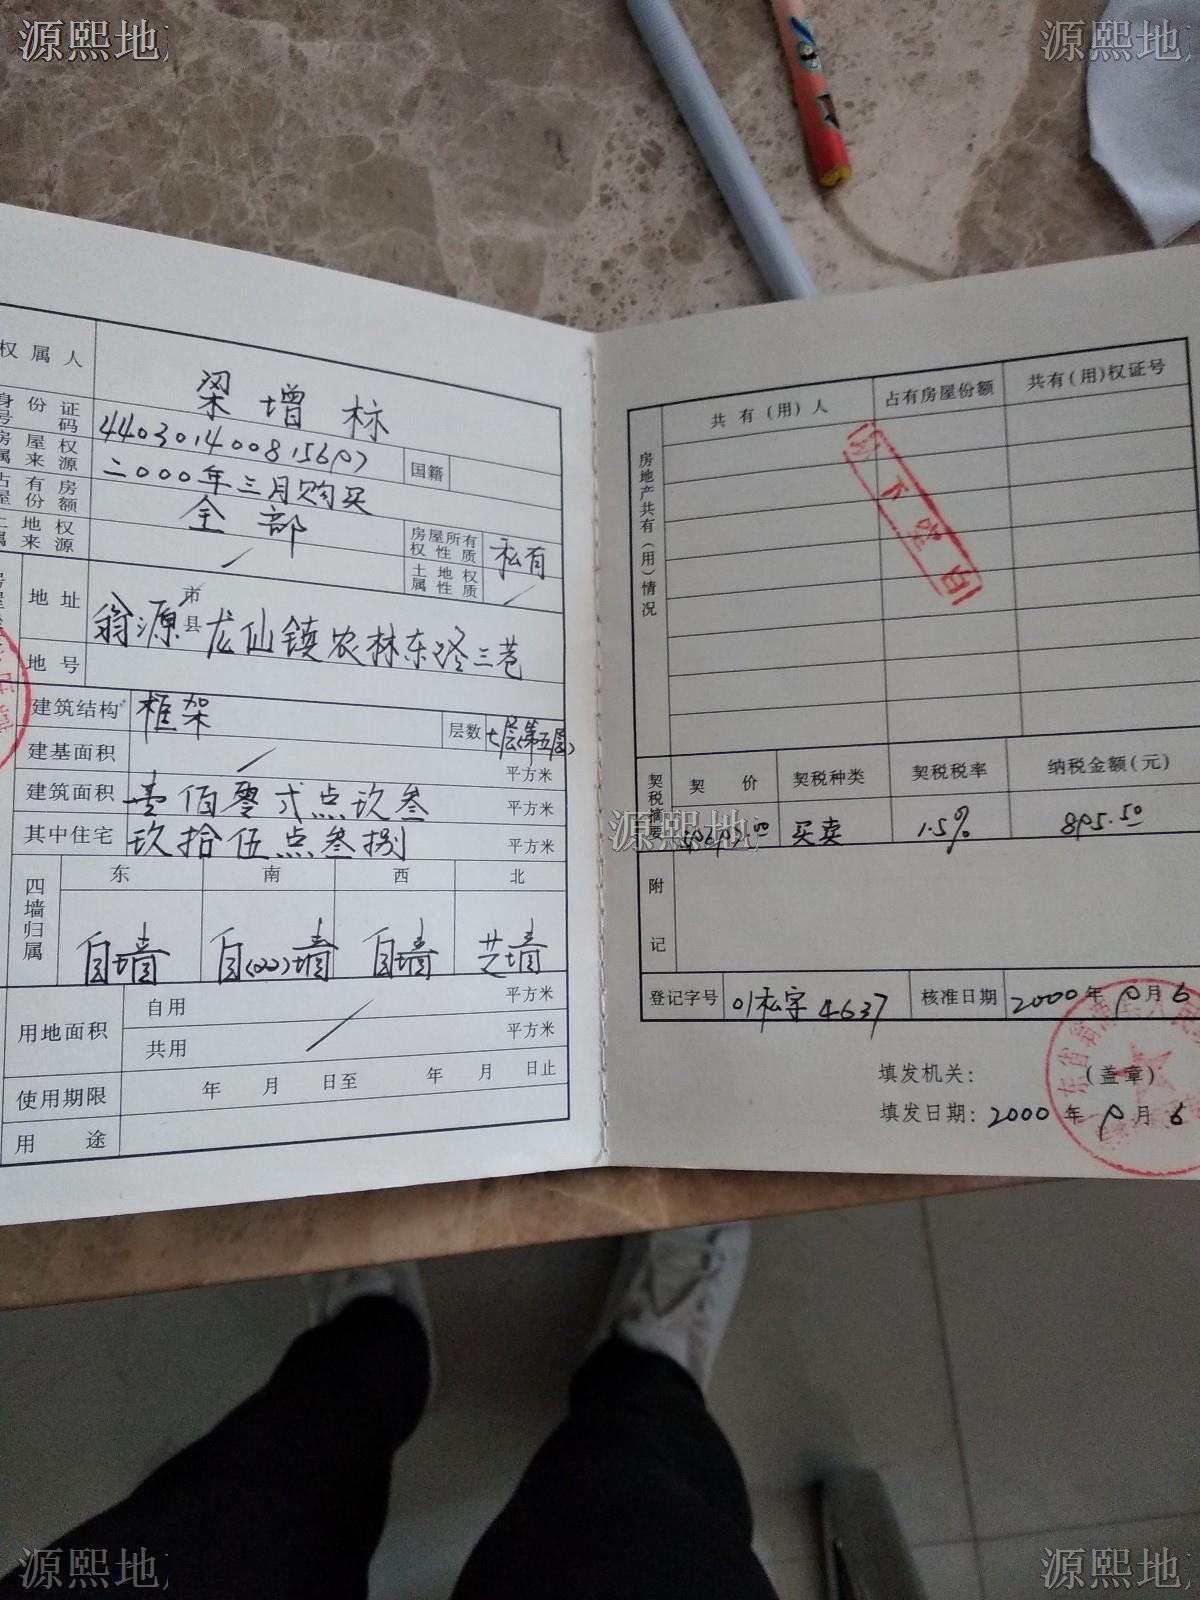 源熙地
源熙地
权属人 梁增标
身份证号码 国籍
房屋权属来源 二000年三月购买
占有房屋份额 全部 房屋所有权性质 私有
土地权属来源 土地权属性质
地址 翁源市县龙仙镇农林东路三巷
地号
建筑结构 框架 层数 七层(第五层)
建基面积 平方米
建筑面积 壹佰零弍点玖叁 平方米
其中住宅 玖拾伍点叁捌 平方米
四墙归属 东 南 西 北
自墙 自墙 自墙
用地面积 自用 平方米
共用 平方米
使用期限 年 月 日至 年 月 日止
用途
房地产共有(用)情况 共有(用)人 占有房屋份额 共有(用)权证号
以下空白
契税摘要 契价 契税种类 契税税率 纳税金额(元)
源熙地
买卖 1.5%
附记
登记字号 01私字4637 核准日期 2000年 月6
填发机关: (盖章)
填发日期: 2000年 月6
源熙地
源熙地